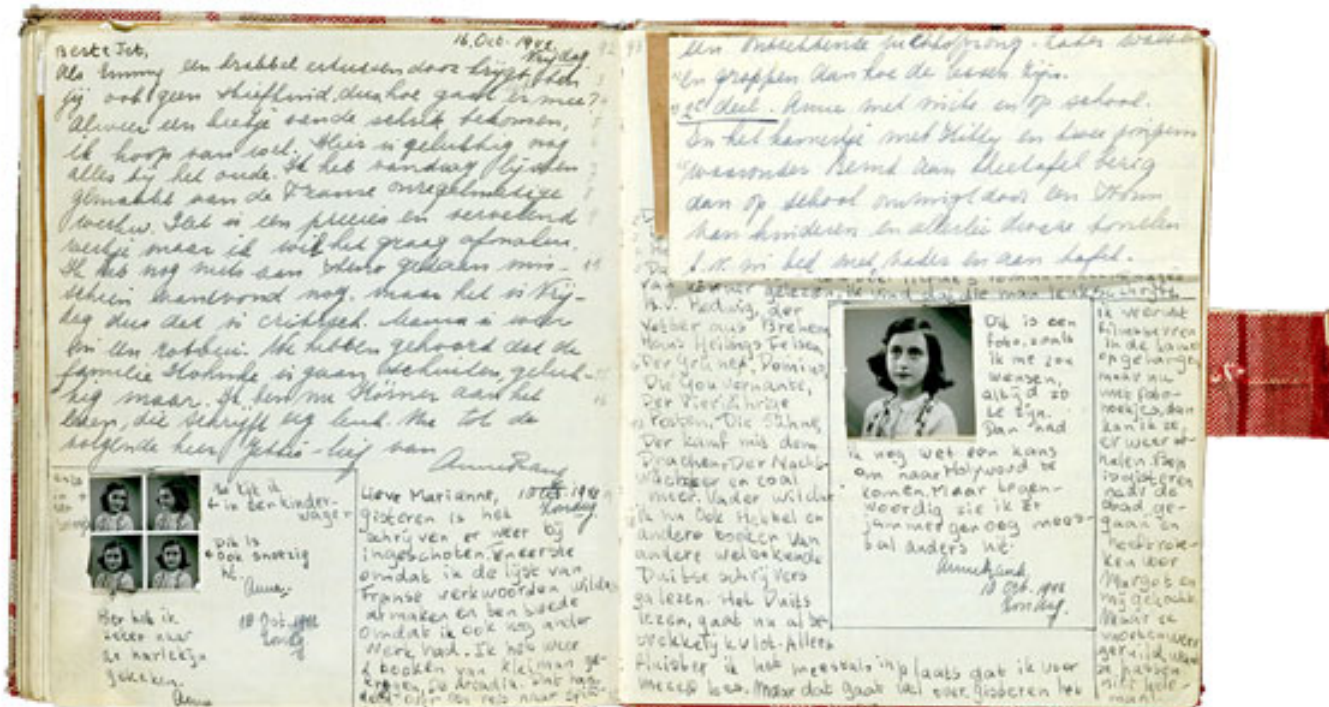 16. Oct. 1942
Vrijdag.
Beste Jet,
Als Emmy een krabbel ertussen door krijgt, ben
jij ook geen stiefkind, dus hoe gaat er mee?
Alweer een beetje van de schrik bekomen,
ik hoop van wel. Hier is gelukkig nog
alles bij het oude. Ik heb vandaag lijsten
gemaakt van de Franse onregelmatige
werkw. Dat is een precies en vervelend
werkje maar ik wil het graag afmaken.
Ik heb nog niets aan steno gedaan mis-
schien vanavond nog, maar het is Vrij-
dag dus dat is critisch. Mama is weer
in een
We hebben gehoord dat de
familie is gaan schuilen, geluk-
kig maar. Ik ben nu Körner aan het
lezen, die schrijft erg leuk. Nu tot de
volgende keer Jettie-lief van
Anne Frank
Zo kijk ik
in een kinder-
wagen
Dit is
ook snoezig
hè.
Anne.
Hier heb ik
zeker naar
de harlekijn
gekeken.
Anne
18 Oct. 1942
Zondag
Lieve Marianne, 18 Oct. 1942
Zondag.
gisteren is het
schrijven er weer bij
ingeschoten. Ten eerste
omdat ik de lijst van
Franse werkwoorden wilde
afmaken en ten tweede
omdat ik ook nog ander
werk had. Ik heb weer
2 boeken van Kleiman ge-
kregen, De Arcadia. Dat han-
delt over een reis naar Spits-
een
en grappen dan hoe de lessen zijn.
2e deel. Anne met
en op school.
En het kamertje met Kitty en twee
waaronder Bernd aan theetafel bezig
dan op school omringd door een drom
van kinderen en allerlei dwaze tonelen
b.v. in bed met vader en aan tafel.
A.v. Hedwig, der
Vetter aus Bremen
Hans Heilings Felsen
Der Grüne Domino,
Die Gouvernante,
Der Vierjährige
Posten. Die Sühne,
Der Kampf mit dem
Drachen. Der Nacht-
wächter en zoal
meer. Vader wil dat
ik nu ook Hebbel en
andere boeken van
andere welbekende
Duitse schrijvers
ga lezen. Het Duits
lezen, gaat nu al be-
trekkelijk vlot. Alleen
fluister ik het meestal in plaats dat ik voor
mezelf lees. Maar dat gaat wel over. gisteren heb
Dit is een
foto, zoals
ik me zou
wensen,
altijd zo
te zijn.
Dan had
ik nog wel een kans
om naar Holywood te
komen. Maar tegen-
woordig zie ik er
jammer genoeg mees-
tal anders uit.
Anne Frank
18 Oct. 1942
Zondag.
ik weer wat
filmsterren
in de kamer
opgehangen
maar nu
met foto-
hoekjes, dan
kan ik ze,
er weer af-
halen. Bep
is gisteren
naar de
stad ge-
gaan en
heeft rok-
ken voor
Margot en
mij gekocht.
Maar ze
moeten weer
geruild, want
ze passen
niet hele-
maal.